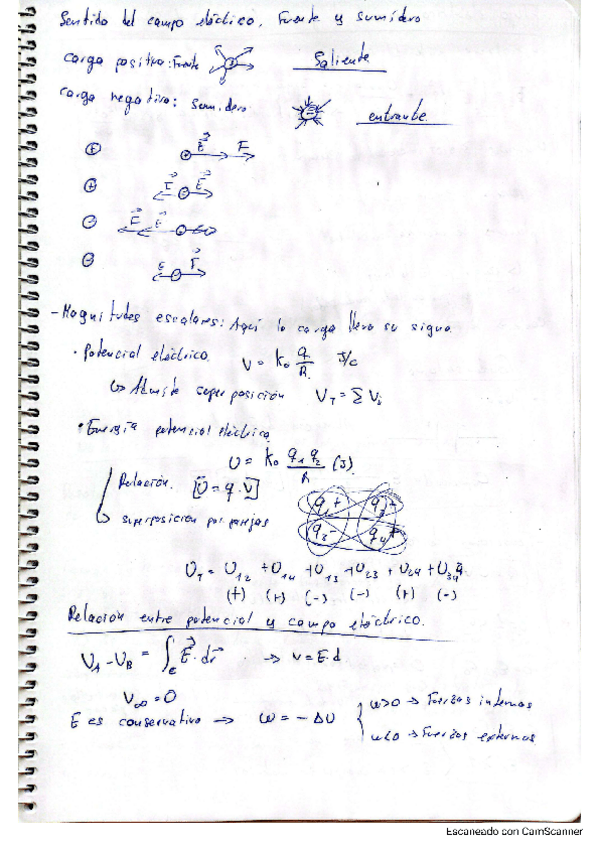 Sentido del campo eléctrico. Fuente y sumidero
carga positiva: Fuente Saliente
carga negativa: sumidero entrante
⊕ E⃗ F
⊕ F⃗ E⃗
⊖ F⃗ E⃗
⊖ E F⃗
- Magnitudes escalares: Aquí la carga lleva su signo.
· Potencial eléctrico. V = K₀ q/R J/c
↳ Admite superposición V_T = Σ Vᵢ
• Energía potencial eléctrica
U = K₀ q₁ q₂/R (J)
Relación. [U = q·V]
↳ superposición por parejas
q₁+ q₂+
q₃- q₄+
U_T = U₁₂ + U₁₄ + U₁₃ + U₂₃ + U₂₄ + U₃₄
(+) (+) (-) (-) (+) (-)
Relación entre potencial y campo eléctrico.
V_A - V_B = ∫ E⃗·dr⃗ → V = E·d.
V∞ = 0
E es conservativo → W = - ΔU
w>0 → Fuerzas internas
w<0 → Fuerzas externas
Escaneado con CamScanner